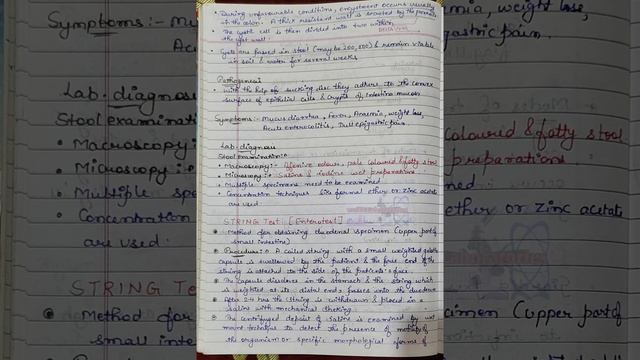 During unfavourable conditions, encystment occurs usually
in the colon. A thick resistant wall is secreted by the parasite
The cyst cell is then divided into two within
the cyst wall.
Cysts are passed in stool (may be 200,000) & remain viable
in soil & water for several weeks
Pathogenesis
With the help of sucking disc they adhere to the convex
surface of epithelial cells & crypts of Intestinal mucosa
Symptoms:- Mucus diarrhea, fever, Anaemia, weight loss,
Acute enterocolitis, Dull epigastric pain.
Lab-diagnosis
Stool examination:-
Macroscopy:- Offensive odour, pale coloured & fatty stool
Microscopy:- Saline & iodine wet preparations
Multiple specimens need to be examined
Concentration techniques like formal ether or zinc acetate
are used.
STRING Test: [Enterotest]
Method for obtaining duodenal specimen (upper part of
small intestine)
Procedure:- A coiled string with a small weighted gelatin
capsule is swallowed by the patient & the free end of the
string is attached to the side of the patient's face.
The capsule dissolves in the stomach & the string which
is weighted at its distal end, passes into the duodenum
After 2-4 hrs the string is withdrawn & placed in a
saline with mechanical shaking
The centrifuged deposit of saline is examined by wet
mount technique to detect the presence of motility of
the organism or specific morphological forms of
Symptoms:- Muc
Acute
Lab-diagnos
Stool examination
Macroscopy:
Microscopy:
Multiple spe
Concentration
are used.
STRING Test
Method for
small inte
emia, weight loss,
igastric pain.
coloured & fatty stool
preparations
ned
ether or zinc acetate
cimen (upper part of